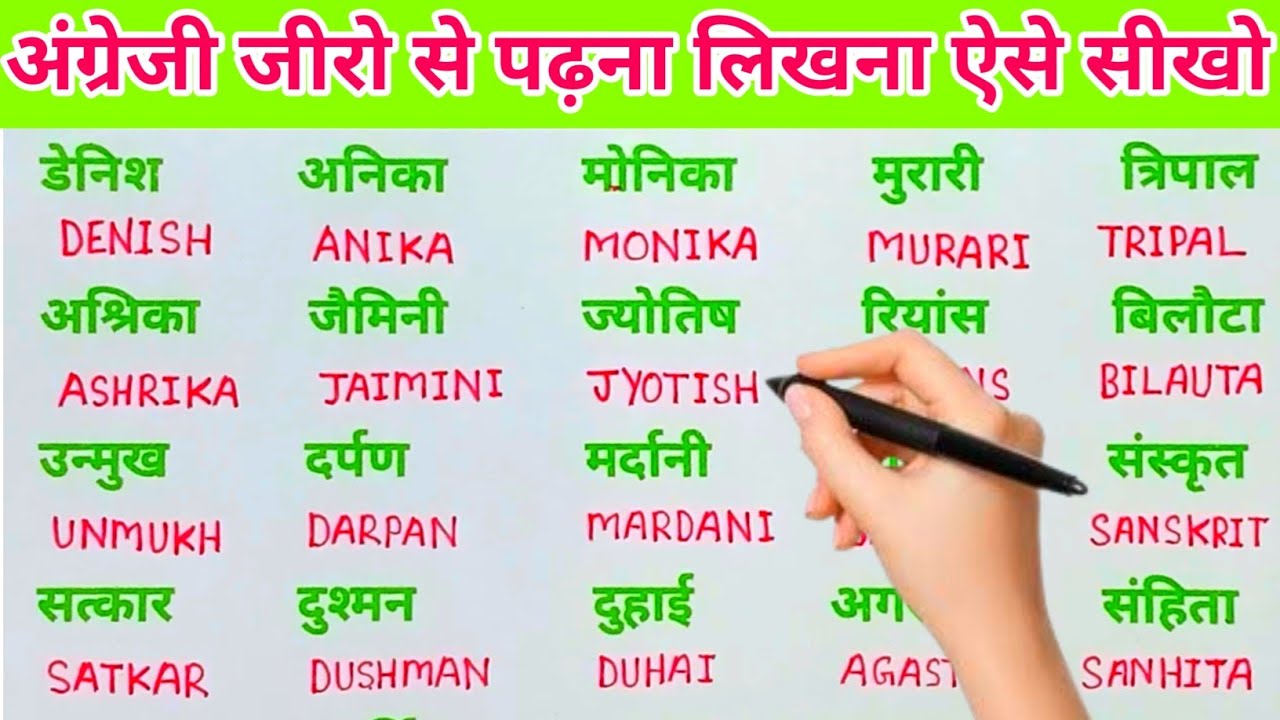 अंग्रेजी जीरो से पढ़ना लिखना ऐसे सीखो
डेनिश अनिका मोनिका मुरारी त्रिपाल
DENISH ANIKA MONIKA MURARI TRIPAL
अश्रिका जैमिनी ज्योतिष रियांस बिलौटा
ASHRIKA JAIMINI JYOTISH BILAUTA
उन्मुख दर्पण मर्दानी संस्कृत
UNMUKH DARPAN MARDANI SANSKRIT
सत्कार दुश्मन दुहाई संहिता
SATKAR DUSHMAN DUHAI SANHITA